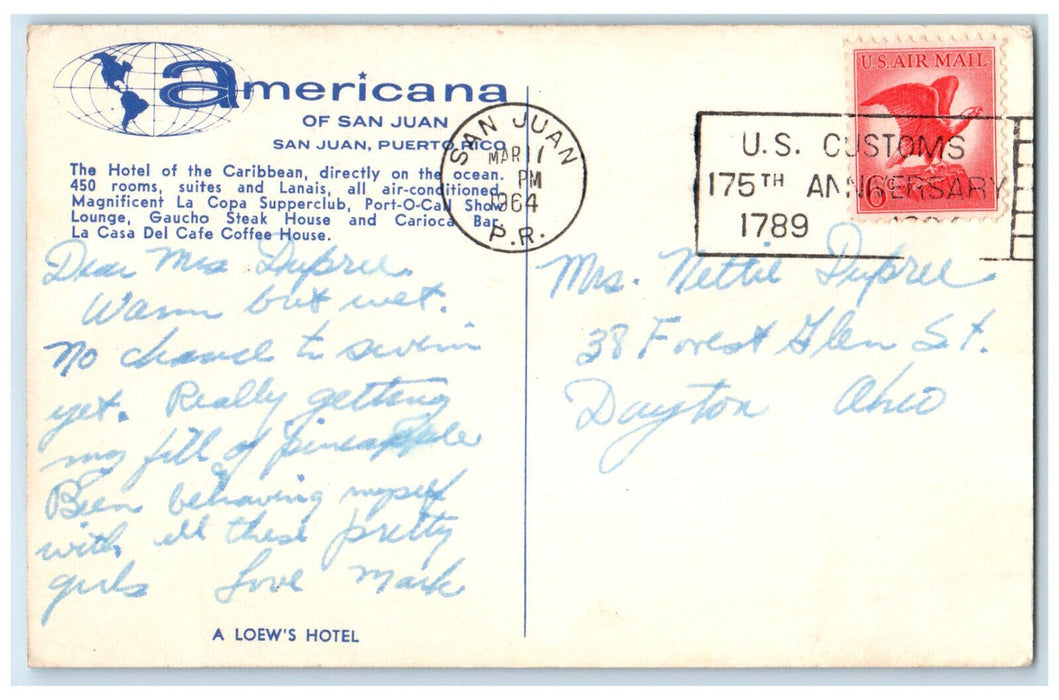 americana
OF SAN JUAN
SAN JUAN, PUERTO RICO
The Hotel of the Caribbean, directly on the ocean.
450 rooms, suites and Lanais, all air-conditioned.
Magnificent La Copa Supperclub, Port-O-Call Show
Lounge, Gaucho Steak House and Carioca Bar.
La Casa Del Cafe Coffee House.
SAN JUAN
MAR 11
PM
1964
P.R.
U.S. CUSTOMS
175TH ANNIVERSARY
1789
U.S. AIR MAIL
6c
Dear Mrs Dupree.
Warm but wet.
No chance to swim
yet. Really getting
my fill of pineapple
Been behaving myself
with all these pretty
girls Love Mark
A LOEW'S HOTEL
Mrs. Nettie Dupree
38 Forest Glen St.
Dayton Ohio